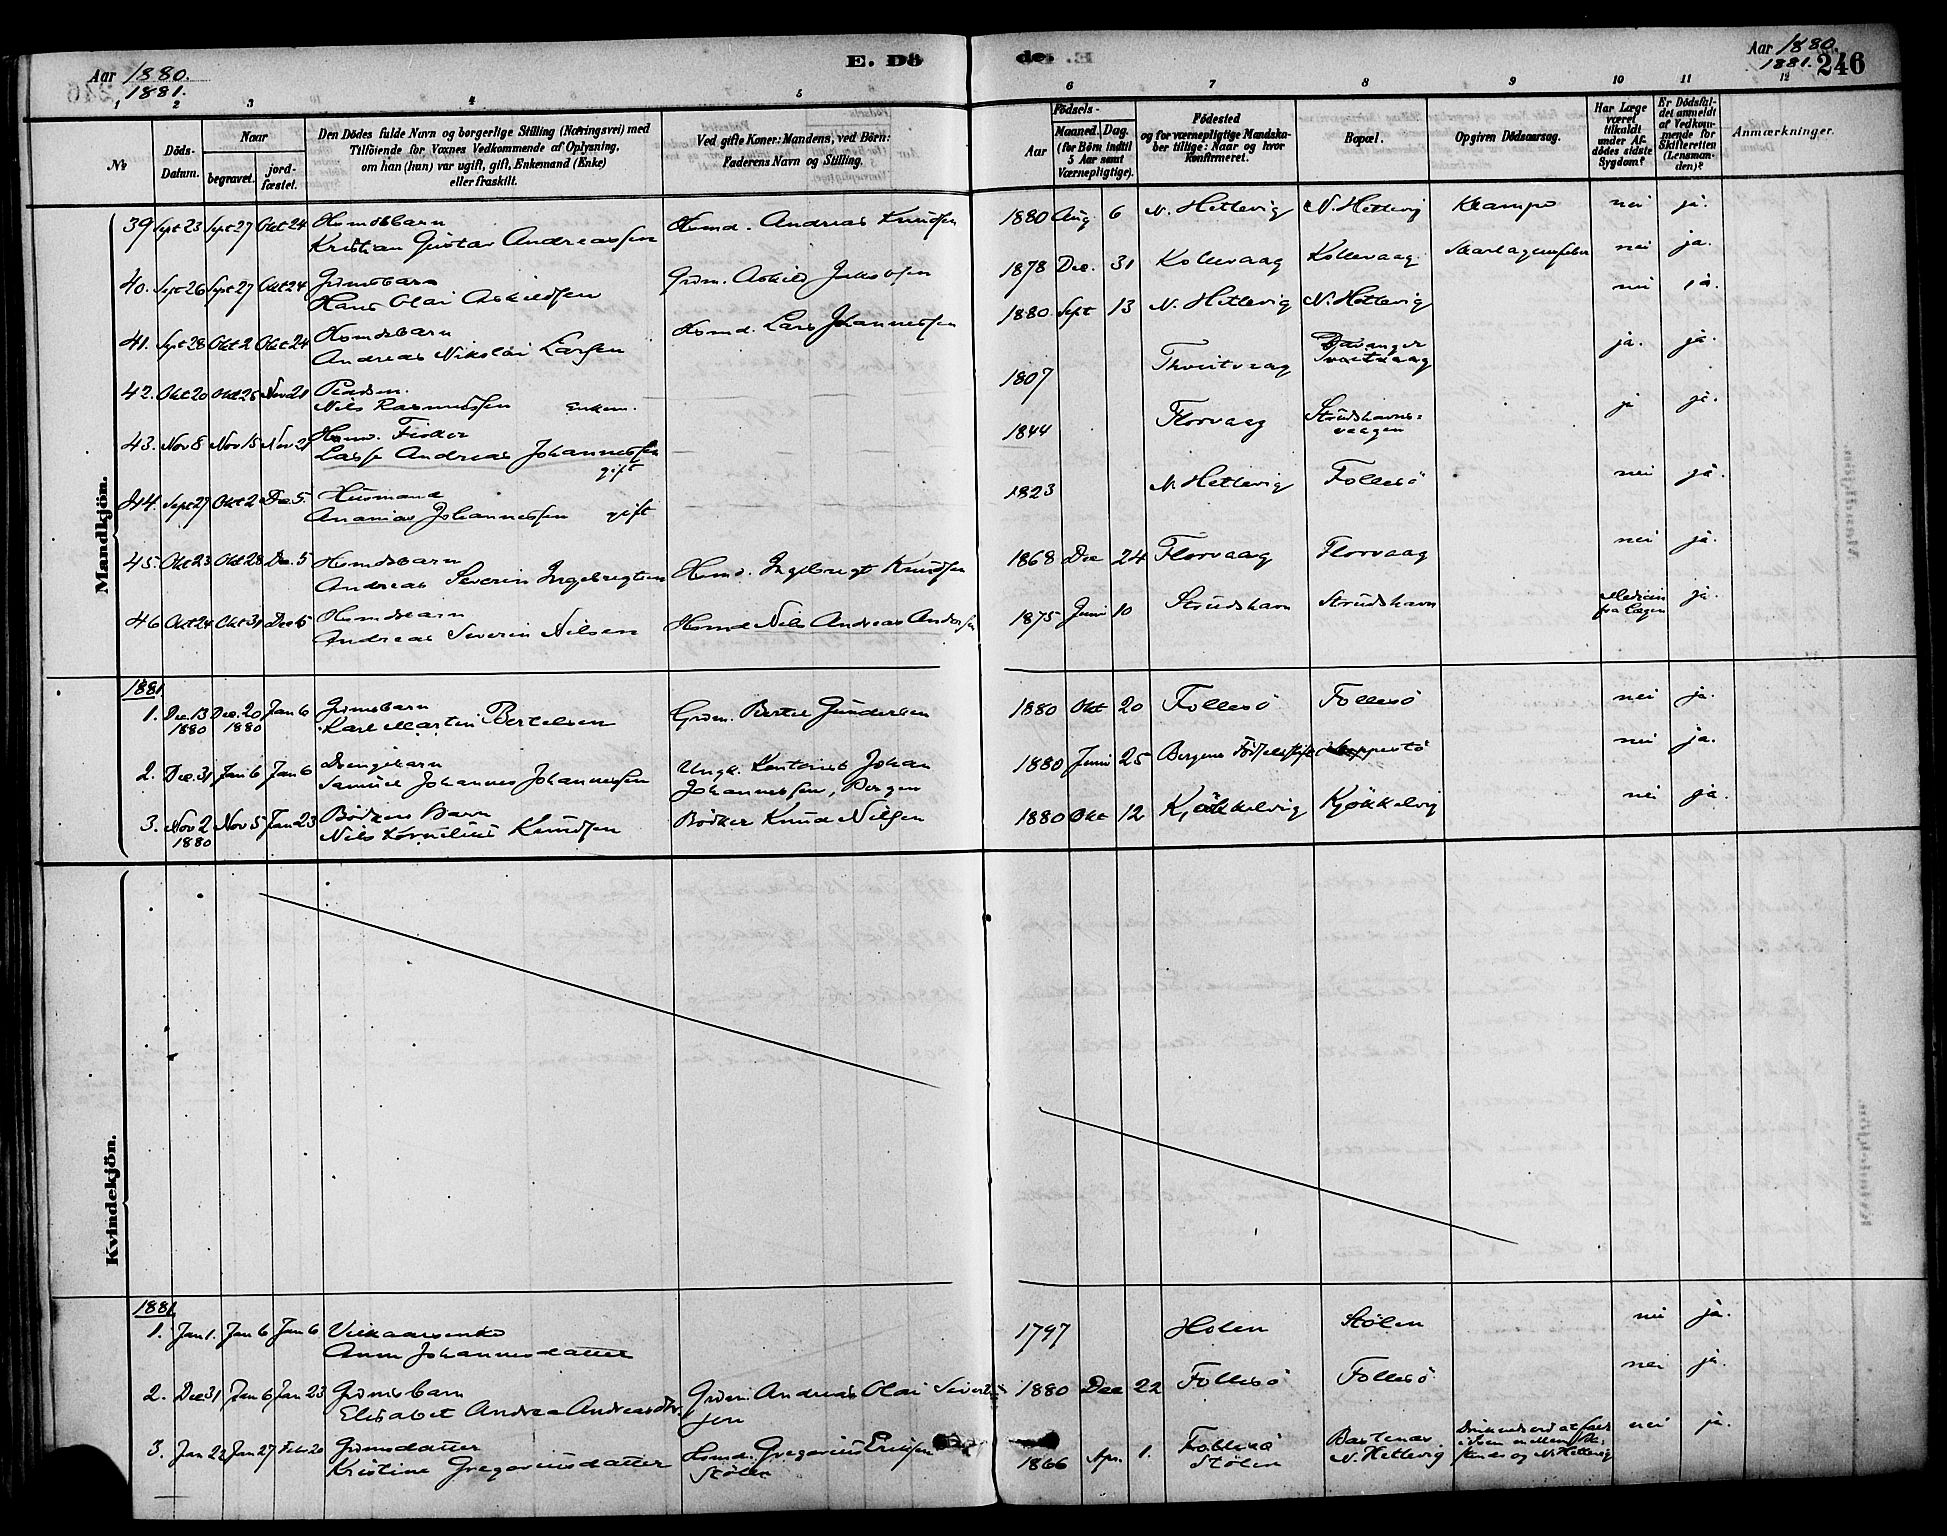 Aar 1880.
1881.
E. Dö
de.
Aar 1880.
1881.
246
1 2 3 4 5 6 7 8 9 10 11 12
No
Döds-Datum.
Naar
begravet.
jord-fæstet.
Den Dödes fulde Navn og borgerlige Stilling (Næringsvei) med
Tilföiende for Voxnes Vedkommende af Oplysning,
om han (hun) var ugift, gift, Enkemand (Enke)
eller fraskilt.
Ved gifte Koner: Mandens, ved Börn:
Faderens Navn og Stilling.
Födsels-
Aar
Maaned. Dag.
(for Börn indtil
5 Aar samt
Værnepligtige).
Födested
og for værnepligtige Mandska-
ber tillige: Naar og hvor
Konfirmeret.
Bopæl.
Opgiven Dödsaarsag.
Har Læge
været
tilkaldt
under Af-
dödes sidste
Sygdom?
Er Dödsfal-
det anmeldt
af Vedkom-
mende for
Skifteretten
(Lensman-
den)?
Anmærkninger.
Mandkjön.
39 Sept 23 Sept 27 Okt 24 Husmdsbarn Kristian Gustav Andreassen Husmd. Andreas Knudsen 1880 Aug 6 N. Hettevig N. Hettevig Krampe nei ja.
40. Sept 26 Sept 27 Okt 24 Grmsbarn Hans Olai Askildsen Grdm. Askild Jakobsen 1878 Dec. 31 Kollevaag Kollevaag Skarlagensfeber nei ja.
41. Sept 28 Okt 2 Okt 24 Husmdsbarn Andreas Nikolai Larsen Husmd. Lars Johannessen 1880. Sept 13 N. Hettevig N. Hettevig nei ja.
42. Okt 20 Okt 26 Nov 21 Nils Rasmussen Enkem. 1807 Thveitvaag Davanger Tveitvaag ja. ja.
43. Nov 8 Nov 15 Nov 21 Lasse Andreas Johannessen gift 1844 Florvaag Strudshavns-vaagen ja ja.
44. Sept 27 Okt 2 Dec. 5. Husmand Ananias Johannessen gift 1823 N. Hettevig Follesö nei ja.
45. Okt 23 Okt 28 Dec. 5 Husmdsbarn Andreas Severin Ingebrigtsen Husmd. Ingebrigt Knudsen 1868 Dec 24 Florvaag Florvaag nei ja.
46 Okt 24 Okt 31 Dec 5 Husmdsbarn Andreas Severin Nilsen Husmd Nils Andreas Andersen 1875 Juni 10 Strudshavn Strudshavn Medicin fra Lægen ja.
1881.
1. Dec. 13 1880 Dec. 20 1880 Jan 6 Grmsbarn Karl Martin Bertelsen Grdm. Bertel Gundersen 1880 Okt 20 Follesö Follesö nei ja.
2. Dec. 31 Jan 6 Jan 6 Drengebarn Samuel Johannes Johannessen Ungk. Kontorist Johan Johannessen, Bergen 1880 Juni 25 Bergens Födselsstift. nei ja.
3. Nov 2 1880 Nov 5 Jan 23 Bödkers Barn Nils Kornelius Knudsen Bödker Knud Nilsen 1880 Okt 12 Kjökkelvig Kjökkelvig nei ja.
Kvindekjön.
1881.
1. Jan 1. Jan 6 Jan 6 Vilkaarsenke Anna Johannesdatter 1797 Holen Stölen nei ja.
2. Dec 31 Jan 6 Jan 23 Grmsbarn Elisabet Andrea Andreasdtr. Grdm. Andreas Olai Severin-sen 1880 Dec 22 Follesö Follesö nei ja.
3. Jan 22 Jan 27 Febr 20 Grmsdatter Kristine Gregoriusdatter Husmd. Gregorius Eriksen Stölen 1866 Apr. 1. Follesö Stölen N. Hettevig Druknede ved at falde i isen mellem og N. Hettevig nei ja.